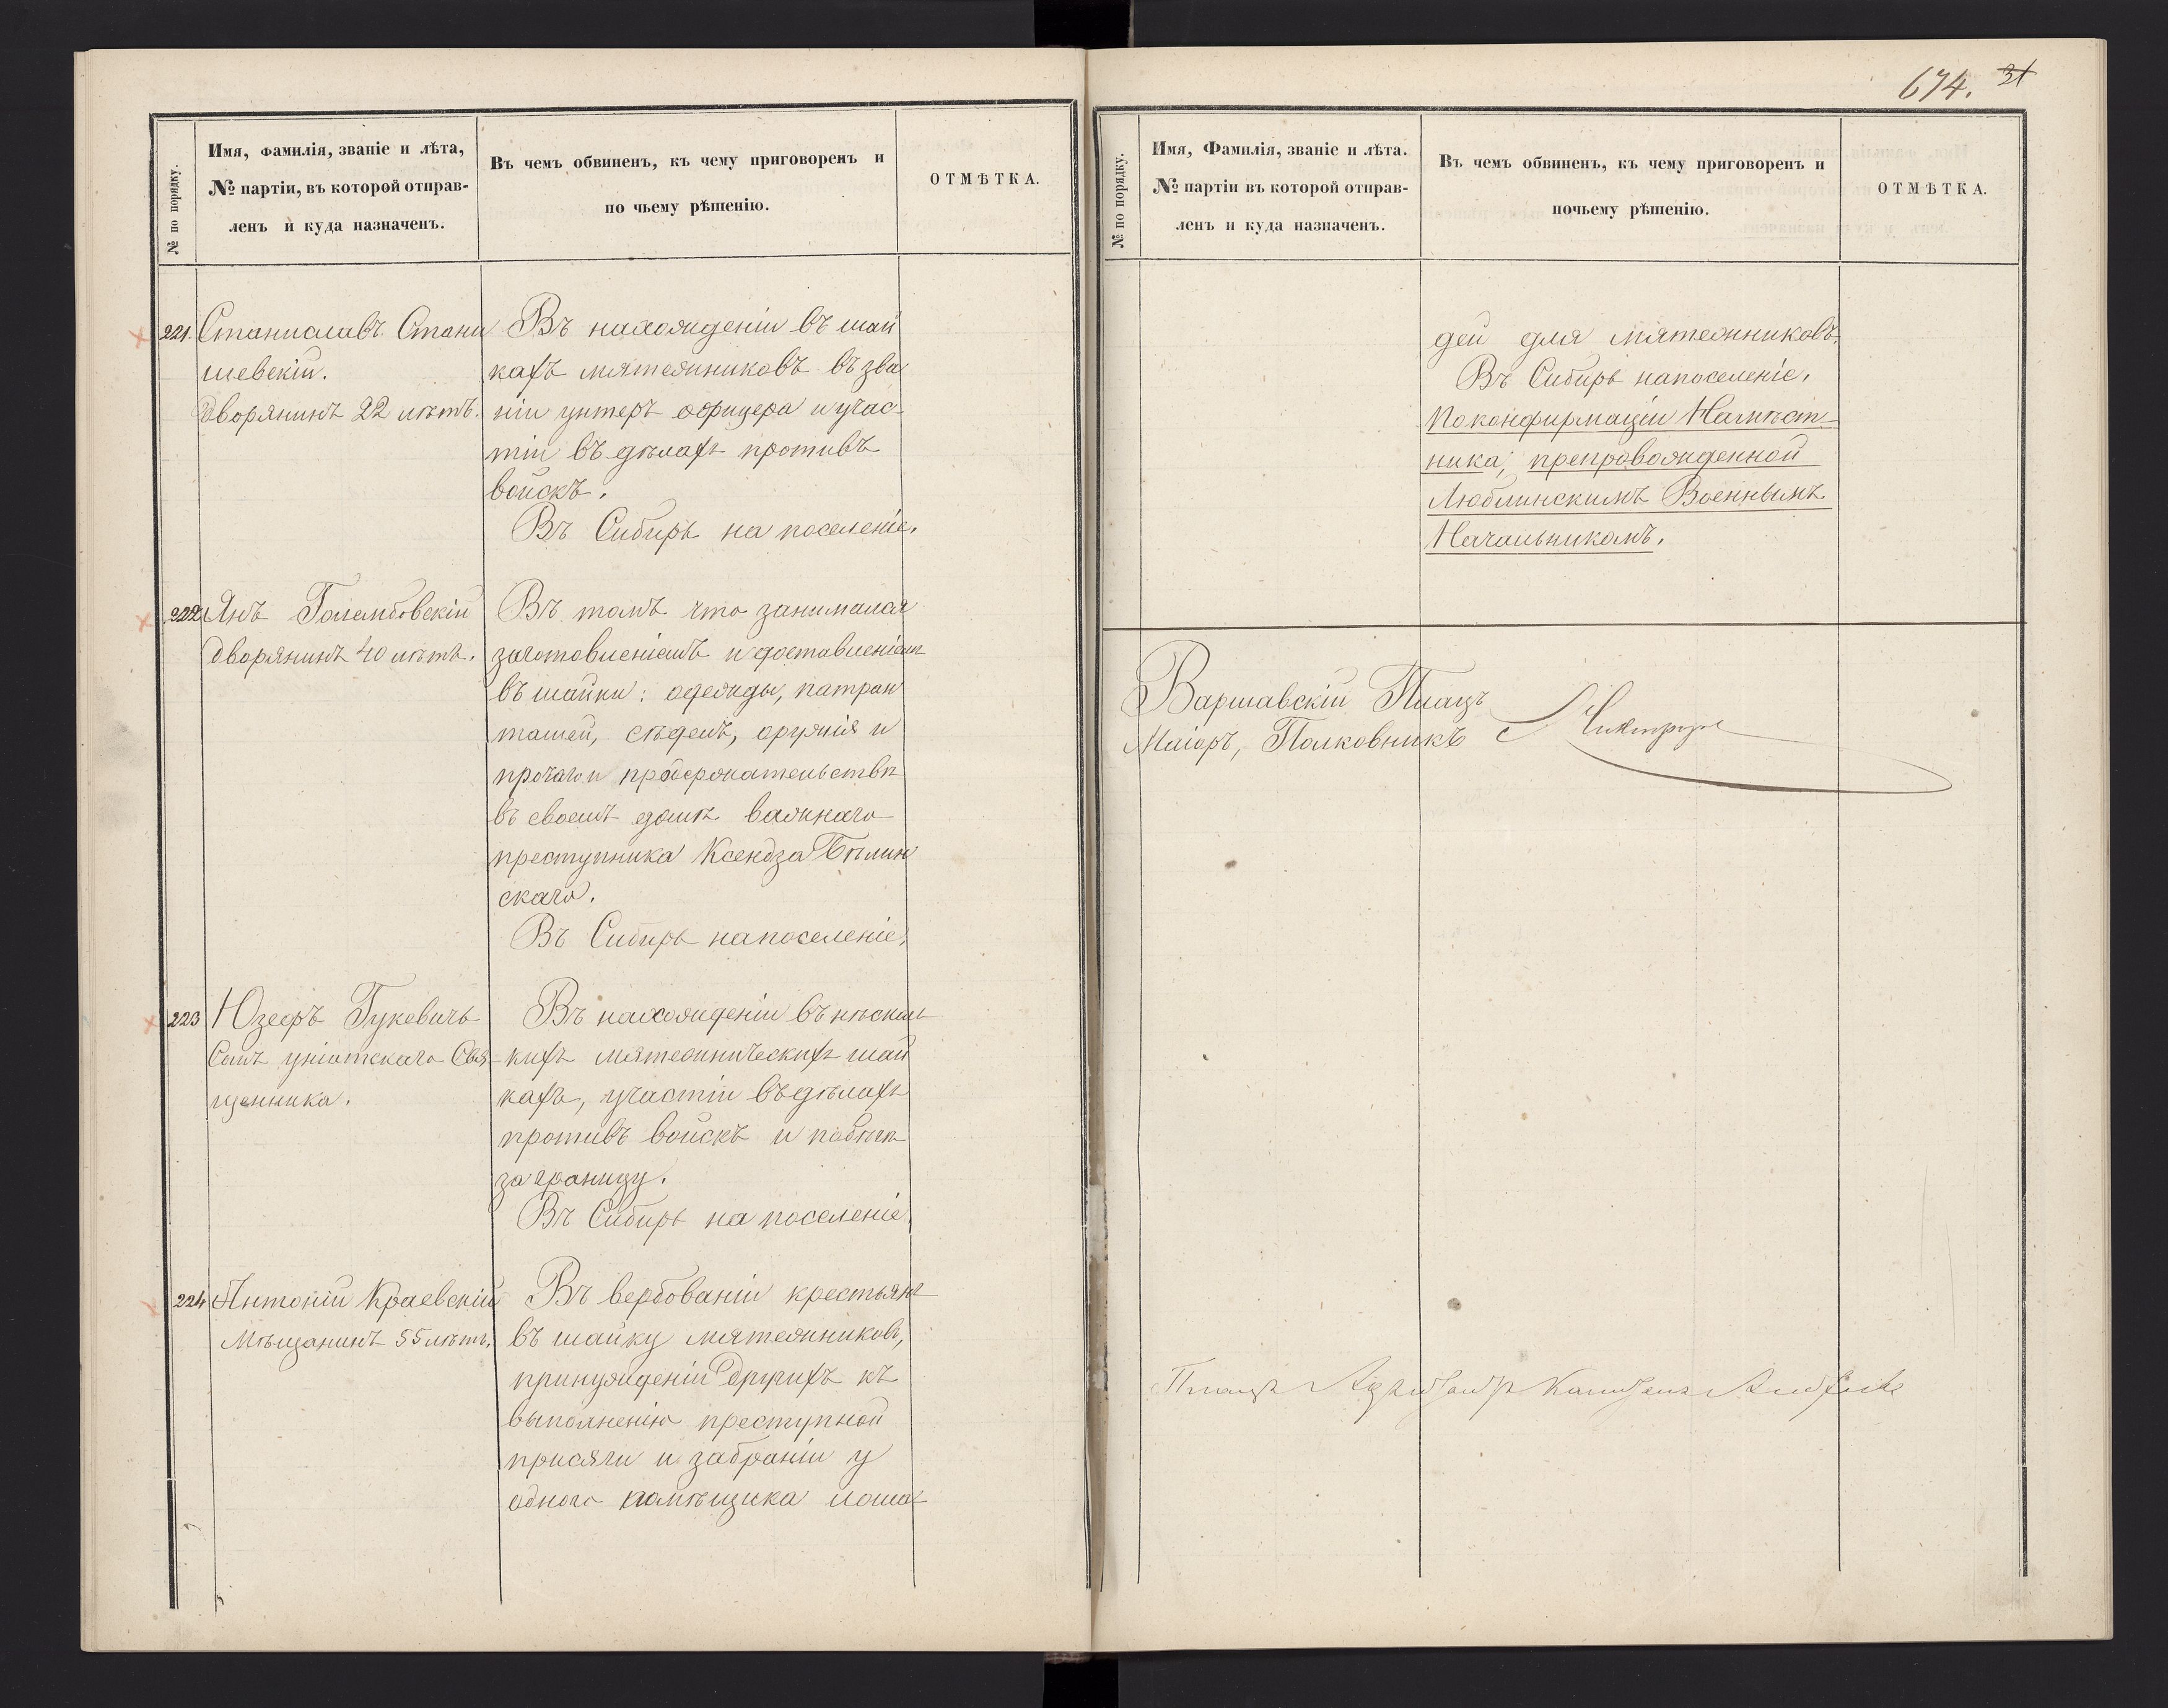 № по порядку.
Имя, фамилія, званіе и лѣта,
№ партіи, въ которой отправ-
ленъ и куда назначенъ.
Въ чемъ обвиненъ, къ чему приговоренъ и
по чьему рѣшенію.
ОТМѢТКА.
221. Станиславъ Стани
шевскій.
Дворянинъ 22 лѣтъ.
Въ нахожденіи въ шай
кахъ мятежниковъ въ зва
ніи унтеръ офицера и учас-
тіи въ дѣлахъ противъ
войскъ.
Въ Сибирь на поселеніе.
222 Янъ Голембовскій
Дворянинъ 40 лѣтъ.
Въ томъ что занимался
заготовленіемъ и доставленіемъ
въ шайки: одежды, патрон
ташей, сѣделъ, оружія и
прочаго и
въ своемъ домѣ важнаго
преступника Ксендза Бѣлин
скаго.
Въ Сибирь на поселеніе.
223 Юзефъ Гукевичъ
Сынъ уніатскаго Свя-
щенника.
Въ нахожденіи въ нѣсколь
кихъ мятежническихъ шай
кахъ, участіи въ дѣлахъ
противъ войскъ и побѣгѣ
за границу.
Въ Сибирь на поселеніе.
224 Антоній Краевскій
Мѣщанинъ 55 лѣтъ.
Въ вербованіи крестьянъ
въ шайку мятежниковъ,
принужденіи другихъ къ
выполненію преступной
присяги и забраніи у
одного помѣщика лоша-
674. 31
№ по порядку.
Имя, Фамилія, званіе и лѣта.
№ партіи въ которой отправ-
ленъ и куда назначенъ.
Въ чемъ обвиненъ, къ чему приговоренъ и
почьему рѣшенію.
ОТМѢТКА.
дей для мятежниковъ.
Въ Сибирь на поселеніе.
По конфирмаціи Намѣст
ника, препровожденной
Люблинскимъ Военнымъ
Начальникомъ.
Варшавскій Плацъ
Маіоръ, Полковникъ
Плацъ Адъютантъ Капитанъ